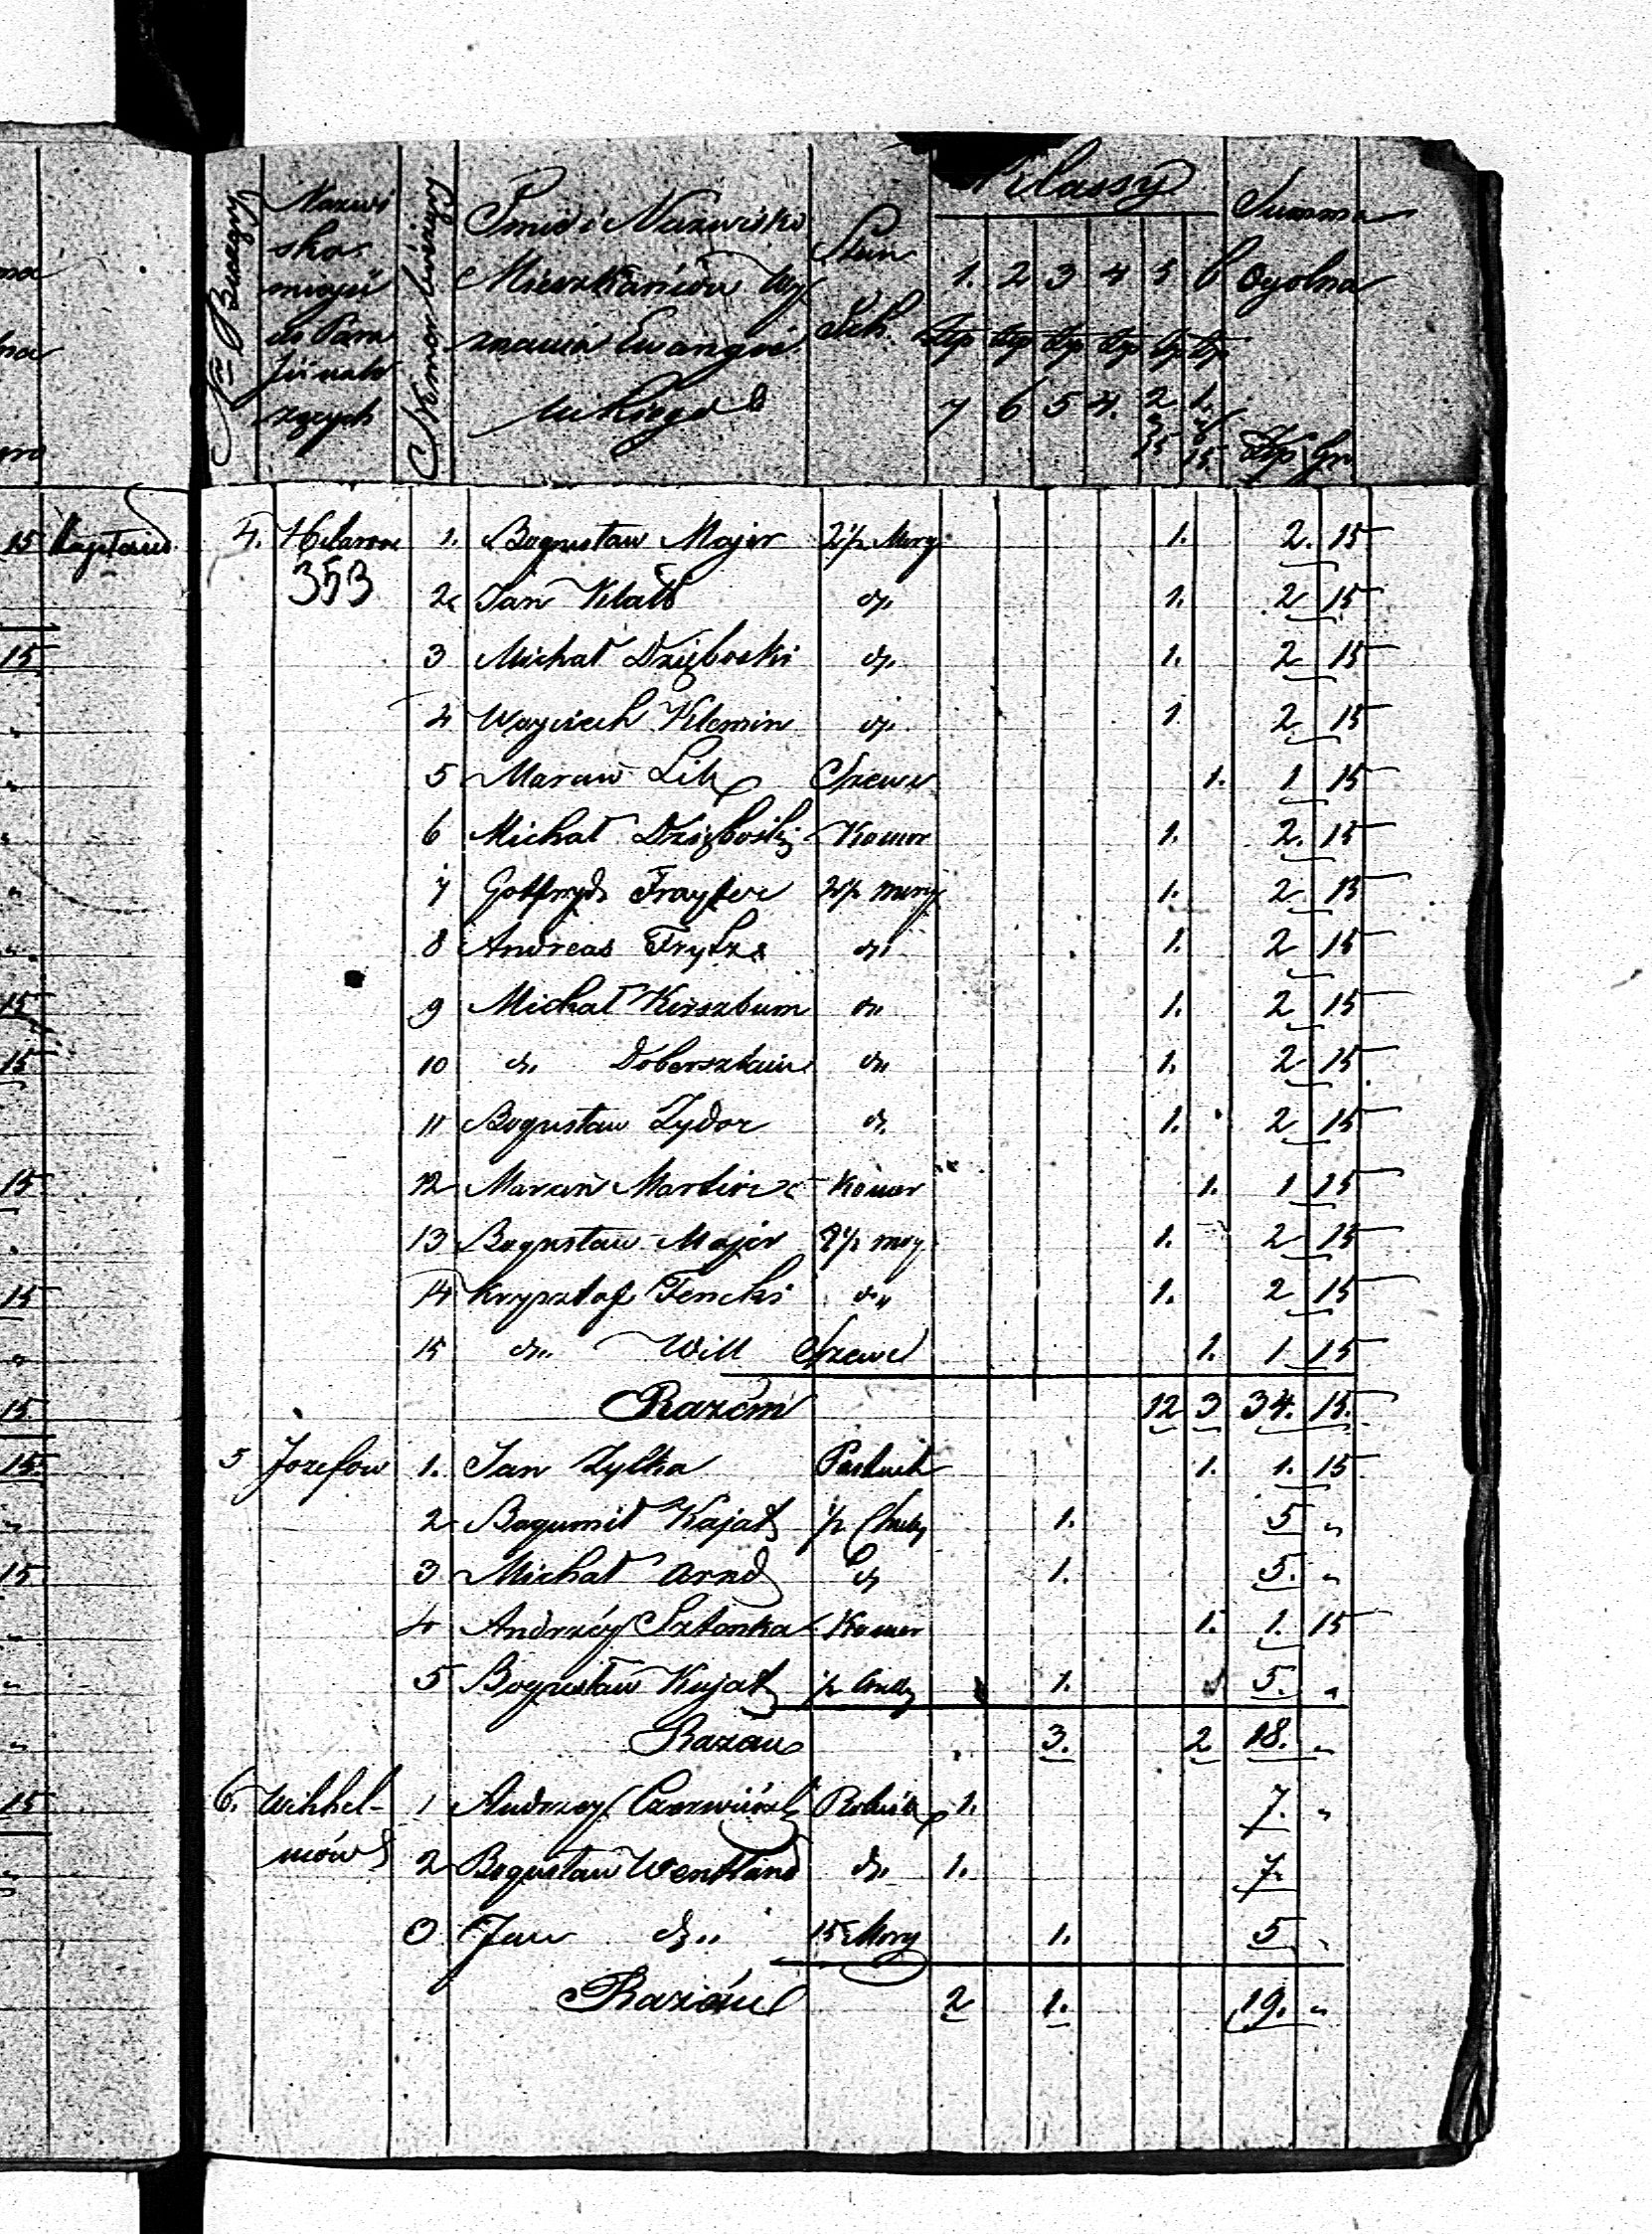 Klassy
Nro Bierzący
Nazwi
sko
mieysc
do Para
fii nale
żących
Numer bieżący
Imie i Nazwisko
Mieszkańców Wy
znania Ewangie
lickiego
Stan
Ich
1. 2 3 4 5 6
Złp Złp Złp Złp Złp Złp
7 6 5 4. 2 1.
15 15
Summa
Ogolna
Złp Gr
4. Hilarow 1. Bogusław Majer 2½ Morg 1. 2. 15
353
2 Jan Klatt do 1. 2 15
3 Michał Dzięboski do 1. 2 15
4 Woyciech Klemin do 1. 2 15
5 Marcin Lik Szewc 1. 1 15
6 Michał Dzięboski Komor 1. 2. 15
7 Gottfryd Frayter 2½ morg 1. 2 15
8 Andreas Frytz do 1. 2 15
9 Michał Kirszbum do 1. 2 15
10 do Dobersztain do 1. 2 15
11 Bogusław Zydor do 1. 2 15
12 Marcin Martin Komor 1. 1 15
13 Bogusław Majer 2½ mog 1. 2 15
14 Krysztof Fencki do 1. 2 15
15 do Will Szewc 1. 1 15
Razem 12 3 34. 15.
5 Jozefow 1. Jan Zylka Pastuch 1. 1. 15
2 Bogumił Kajat ½ 1. 5 "
3 Michał Arnd do 1. 5. "
4 Andrzéy Sztonka Komor 1. 1. 15
5 Bogusław Kujat ½ 1. 5. "
Razem 3. 2 18. "
6. Wilhel- 1 Andrzey Czerwiński Rolnik 1. 7. "
mów 2 Bogusław Wentland do 1. 7.
3 Jan do 15 Morg 1. 5 "
Razém 2 1. 19. "
15
15
15
15
15
15
15
15
15
15